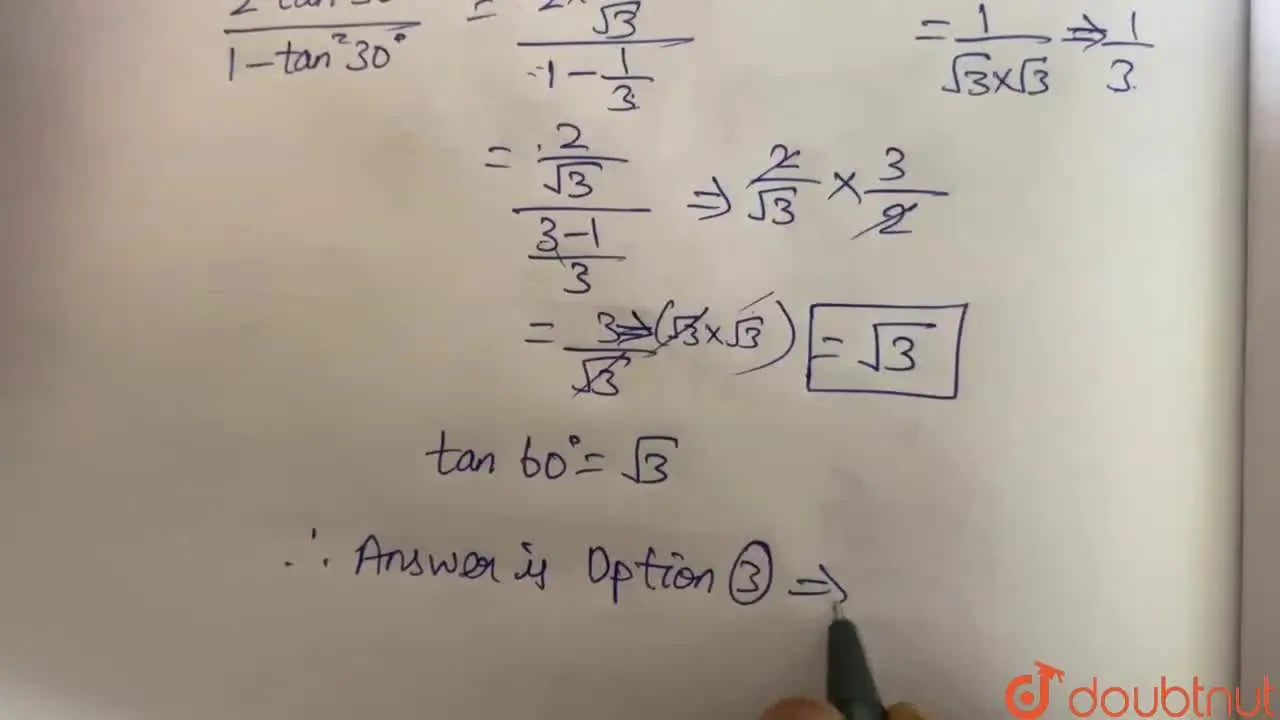 2 tan 30° / 1 - tan²30° = 2× 1/√3 / 1 - 1/3
= 1/√3×√3 ⇒ 1/3
= 2/√3 / 3-1/3 ⇒ 2/√3 × 3/2
= 3/√3 ⇒ (√3×√3) = √3
tan 60° = √3
∴ Answer is Option ③ ⇒
doubtnut